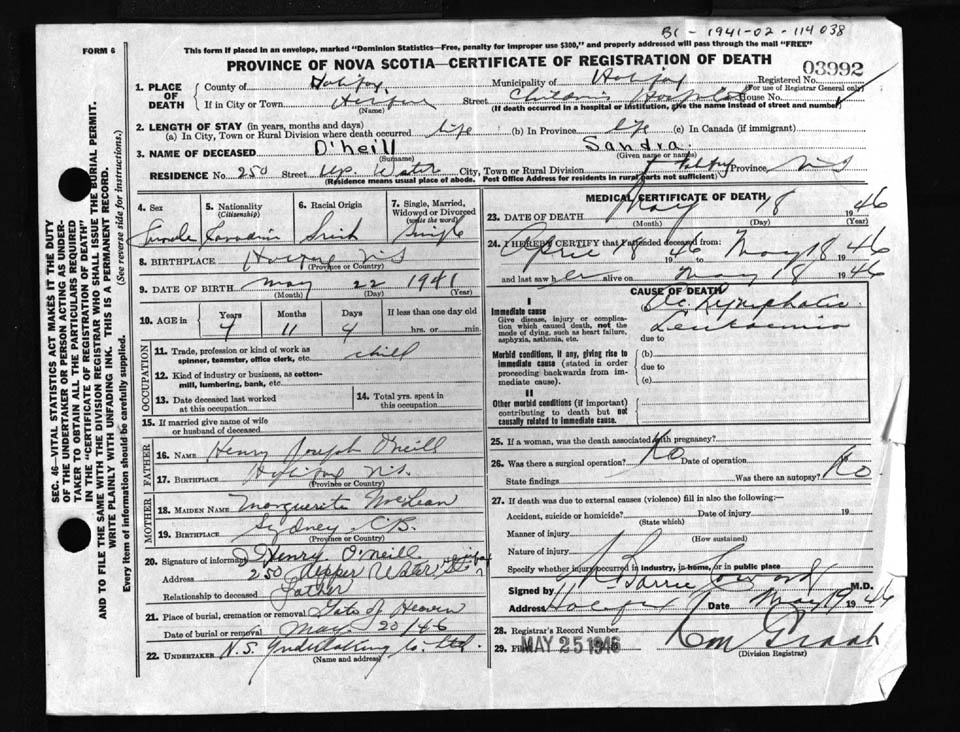 BC - 1941-02-114038
FORM 6
This form if placed in an envelope, marked "Dominion Statistics—Free, penalty for improper use $300," and properly addressed will pass through the mail "FREE"
PROVINCE OF NOVA SCOTIA—CERTIFICATE OF REGISTRATION OF DEATH
03992
1. PLACE OF DEATH
County of Halifax Municipality of Halifax Registered No.
(For use of Registrar General only)
If in City or Town Halifax Street Children's Hospital House No.
(Name) (If death occurred in a hospital or institution, give the name instead of street and number)
2. LENGTH OF STAY (in years, months and days)
(a) In City, Town or Rural Division where death occurred life (b) In Province life (c) In Canada (if immigrant)
3. NAME OF DECEASED O'neill Sandra
(Surname) (Given name or names)
RESIDENCE No. 250 Street Up. Water City, Town or Rural Division Halifax Province N.S
(Residence means usual place of abode. Post Office Address for residents in rural parts not sufficient)
4. Sex
5. Nationality (Citizenship)
6. Racial Origin
7. Single, Married, Widowed or Divorced (write the word)
Female Canadian Irish Single
8. BIRTHPLACE Halifax N.S
(Province or Country)
9. DATE OF BIRTH May 22 1941
(Month) (Day) (Year)
10. AGE in Years Months Days If less than one day old
4 11 4 hrs. or min.
OCCUPATION
11. Trade, profession or kind of work as spinner, teamster, office clerk, etc. child
12. Kind of industry or business, as cotton-mill, lumbering, bank, etc.
13. Date deceased last worked at this occupation
14. Total yrs. spent in this occupation
15. If married give name of wife or husband of deceased
FATHER
16. Name Henry Joseph O'neill
17. Birthplace Halifax N.S.
(Province or Country)
MOTHER
18. Maiden Name Marguerite McLean
19. Birthplace Sydney C.B.
(Province or Country)
20. Signature of informant J Henry O'Neill
Address 250 Upper Water St Halifax
Relationship to deceased Father
21. Place of burial, cremation or removal Gate of Heaven
Date of burial or removal May 20/46
22. UNDERTAKER N.S. Undertaking Co. Ltd.
(Name and address)
MEDICAL CERTIFICATE OF DEATH
23. DATE OF DEATH May 18 1946
(Month) (Day) (Year)
24. I HEREBY CERTIFY that I attended deceased from:
April 18 1946 to May 18 1946
and last saw her alive on May 18 1946
CAUSE OF DEATH
I
Immediate cause
Give disease, injury or complication which caused death, not the mode of dying, such as heart failure, asphyxia, asthenia, etc.
Ac. Lymphatic
Leukaemia
due to
Morbid conditions, if any, giving rise to immediate cause (stated in order proceeding backwards from immediate cause).
(b)
due to
(c)
II
Other morbid conditions (if important) contributing to death but not causally related to immediate cause.
25. If a woman, was the death associated with pregnancy?
26. Was there a surgical operation? No Date of operation
State findings Was there an autopsy? No
27. If death was due to external causes (violence) fill in also the following:—
Accident, suicide or homicide? Date of injury 19
(State which)
Manner of injury
(How sustained)
Nature of injury
Specify whether injury occurred in industry, in home, or in public place
Signed by N Barrie Coward M.D.
Address Halifax Date May 19 1946
28. Registrar's Record Number
29. MAY 25 1946
(Division Registrar)
SEC. 46—VITAL STATISTICS ACT MAKES IT THE DUTY
OF THE UNDERTAKER OR PERSON ACTING AS UNDER-
TAKER TO OBTAIN ALL THE PARTICULARS REQUIRED
IN THE "CERTIFICATE OF REGISTRATION OF DEATH"
AND TO FILE THE SAME WITH THE DIVISION REGISTRAR WHO SHALL ISSUE THE BURIAL PERMIT.
WRITE PLAINLY WITH UNFADING INK. THIS IS A PERMANENT RECORD.
Every item of information should be carefully supplied. (See reverse side for instructions.)